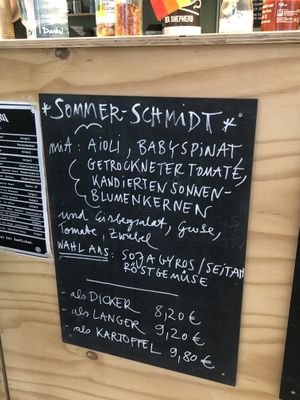 Danke
EL SHEPHERD
*SOMMER-SCHMIDT*
mit: AIOLI, BABYSPINAT,
GETROCKNETER TOMATE,
KANDIERTEN SONNEN-
BLUMENKERNEN
und Eisbergsalat, Gurke,
Tomate, Zwiebel
WAHL AUS: SOJA GYROS/SEITAN
RÖSTGEMÜSE
- als DICKER 8,20 €
- als LANGER 9,20 €
- als KARTOFFEL 9,80 €